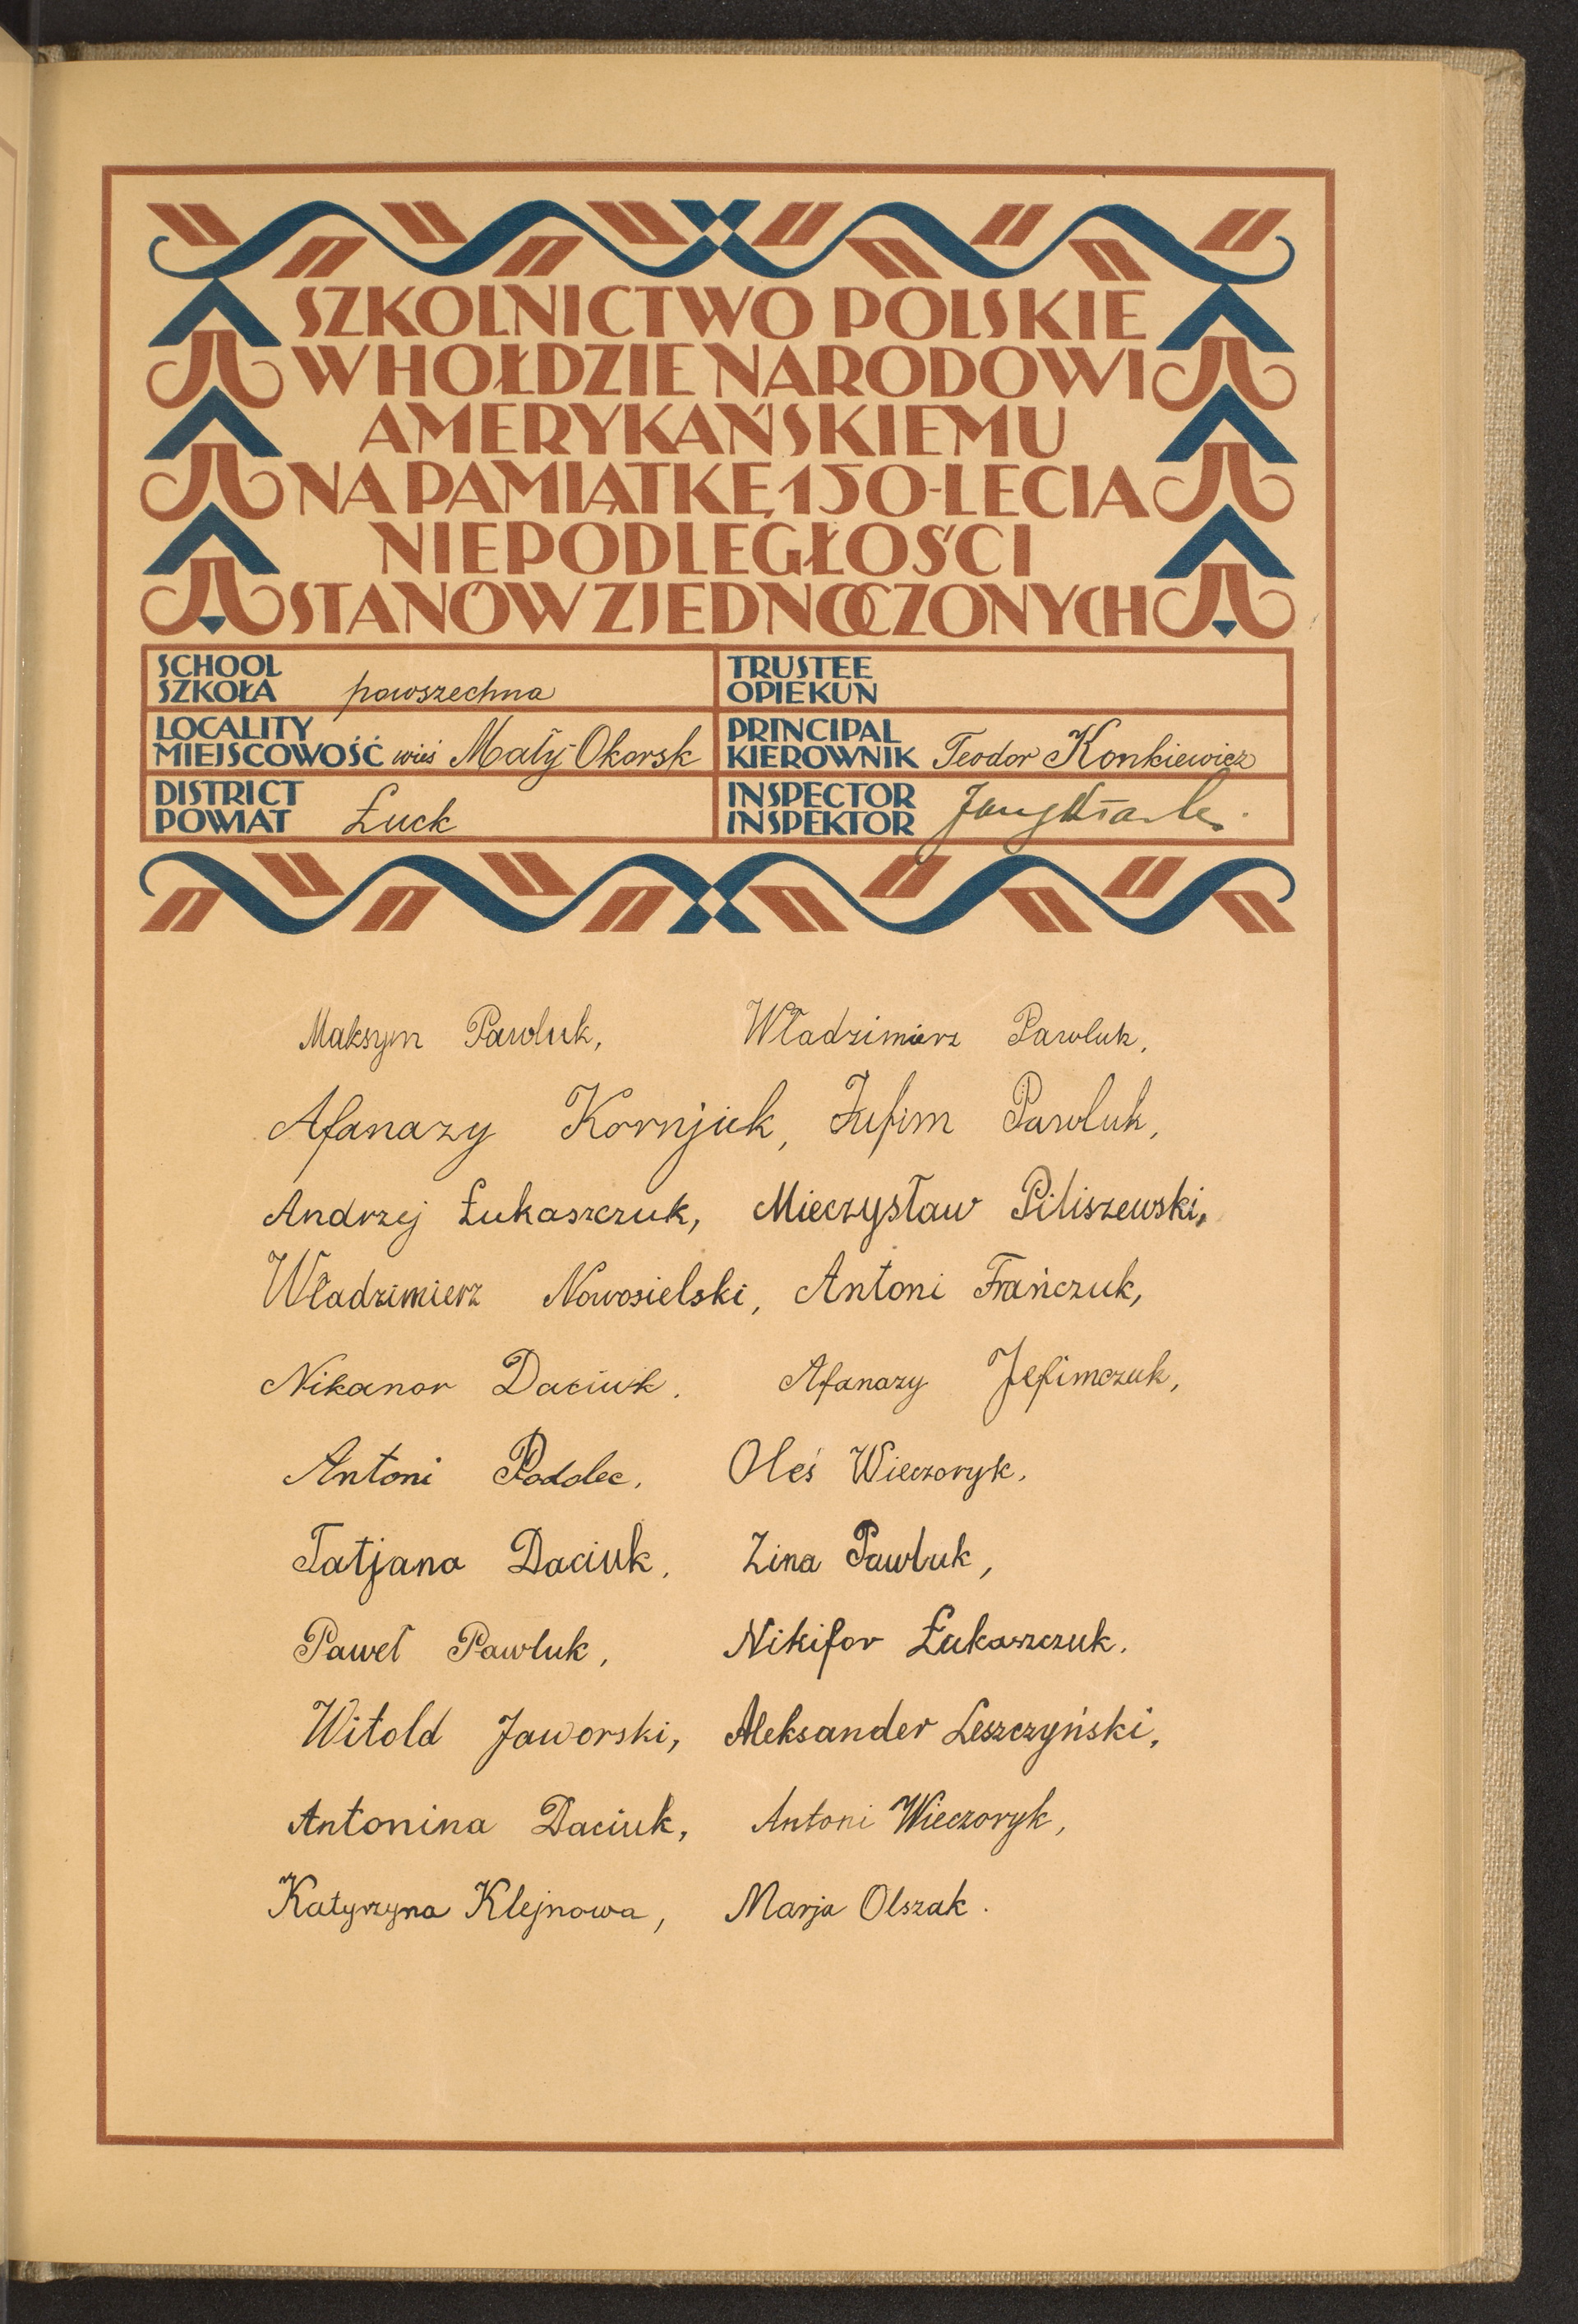 SZKOLNICTWO POLSKIE
W HOŁDZIE NARODOWI
AMERYKAŃSKIEMU
NA PAMIĄTKĘ 150-LECIA
NIEPODLEGŁOŚCI
STANÓW ZJEDNOCZONYCH
SCHOOL
SZKOŁA powszechna
TRUSTEE
OPIEKUN
LOCALITY
MIEJSCOWOŚĆ wieś Mały-Okorsk
PRINCIPAL
KIEROWNIK Teodor Konkiewicz
DISTRICT
POWIAT Łuck
INSPECTOR
INSPEKTOR
Maksym Pawluk, Władzimierz Pawluk,
Afanazy Kornjuk, Jufim Pawluk,
Andrzej Łukaszczuk, Mieczysław Piliszewski,
Władzimierz Nowosielski, Antoni Frańczuk,
Nikanor Daciuk. Afanazy Jefimczuk,
Antoni Podolec. Oleś Wieczoryk.
Tatjana Daciuk. Zina Pawluk,
Paweł Pawluk, Nikifor Łukaszczuk.
Witold Jaworski, Aleksander Leszczyński,
Antonina Daciuk, Antoni Wieczoryk,
Katyrzyna Klejnowa, Marja Olszak.